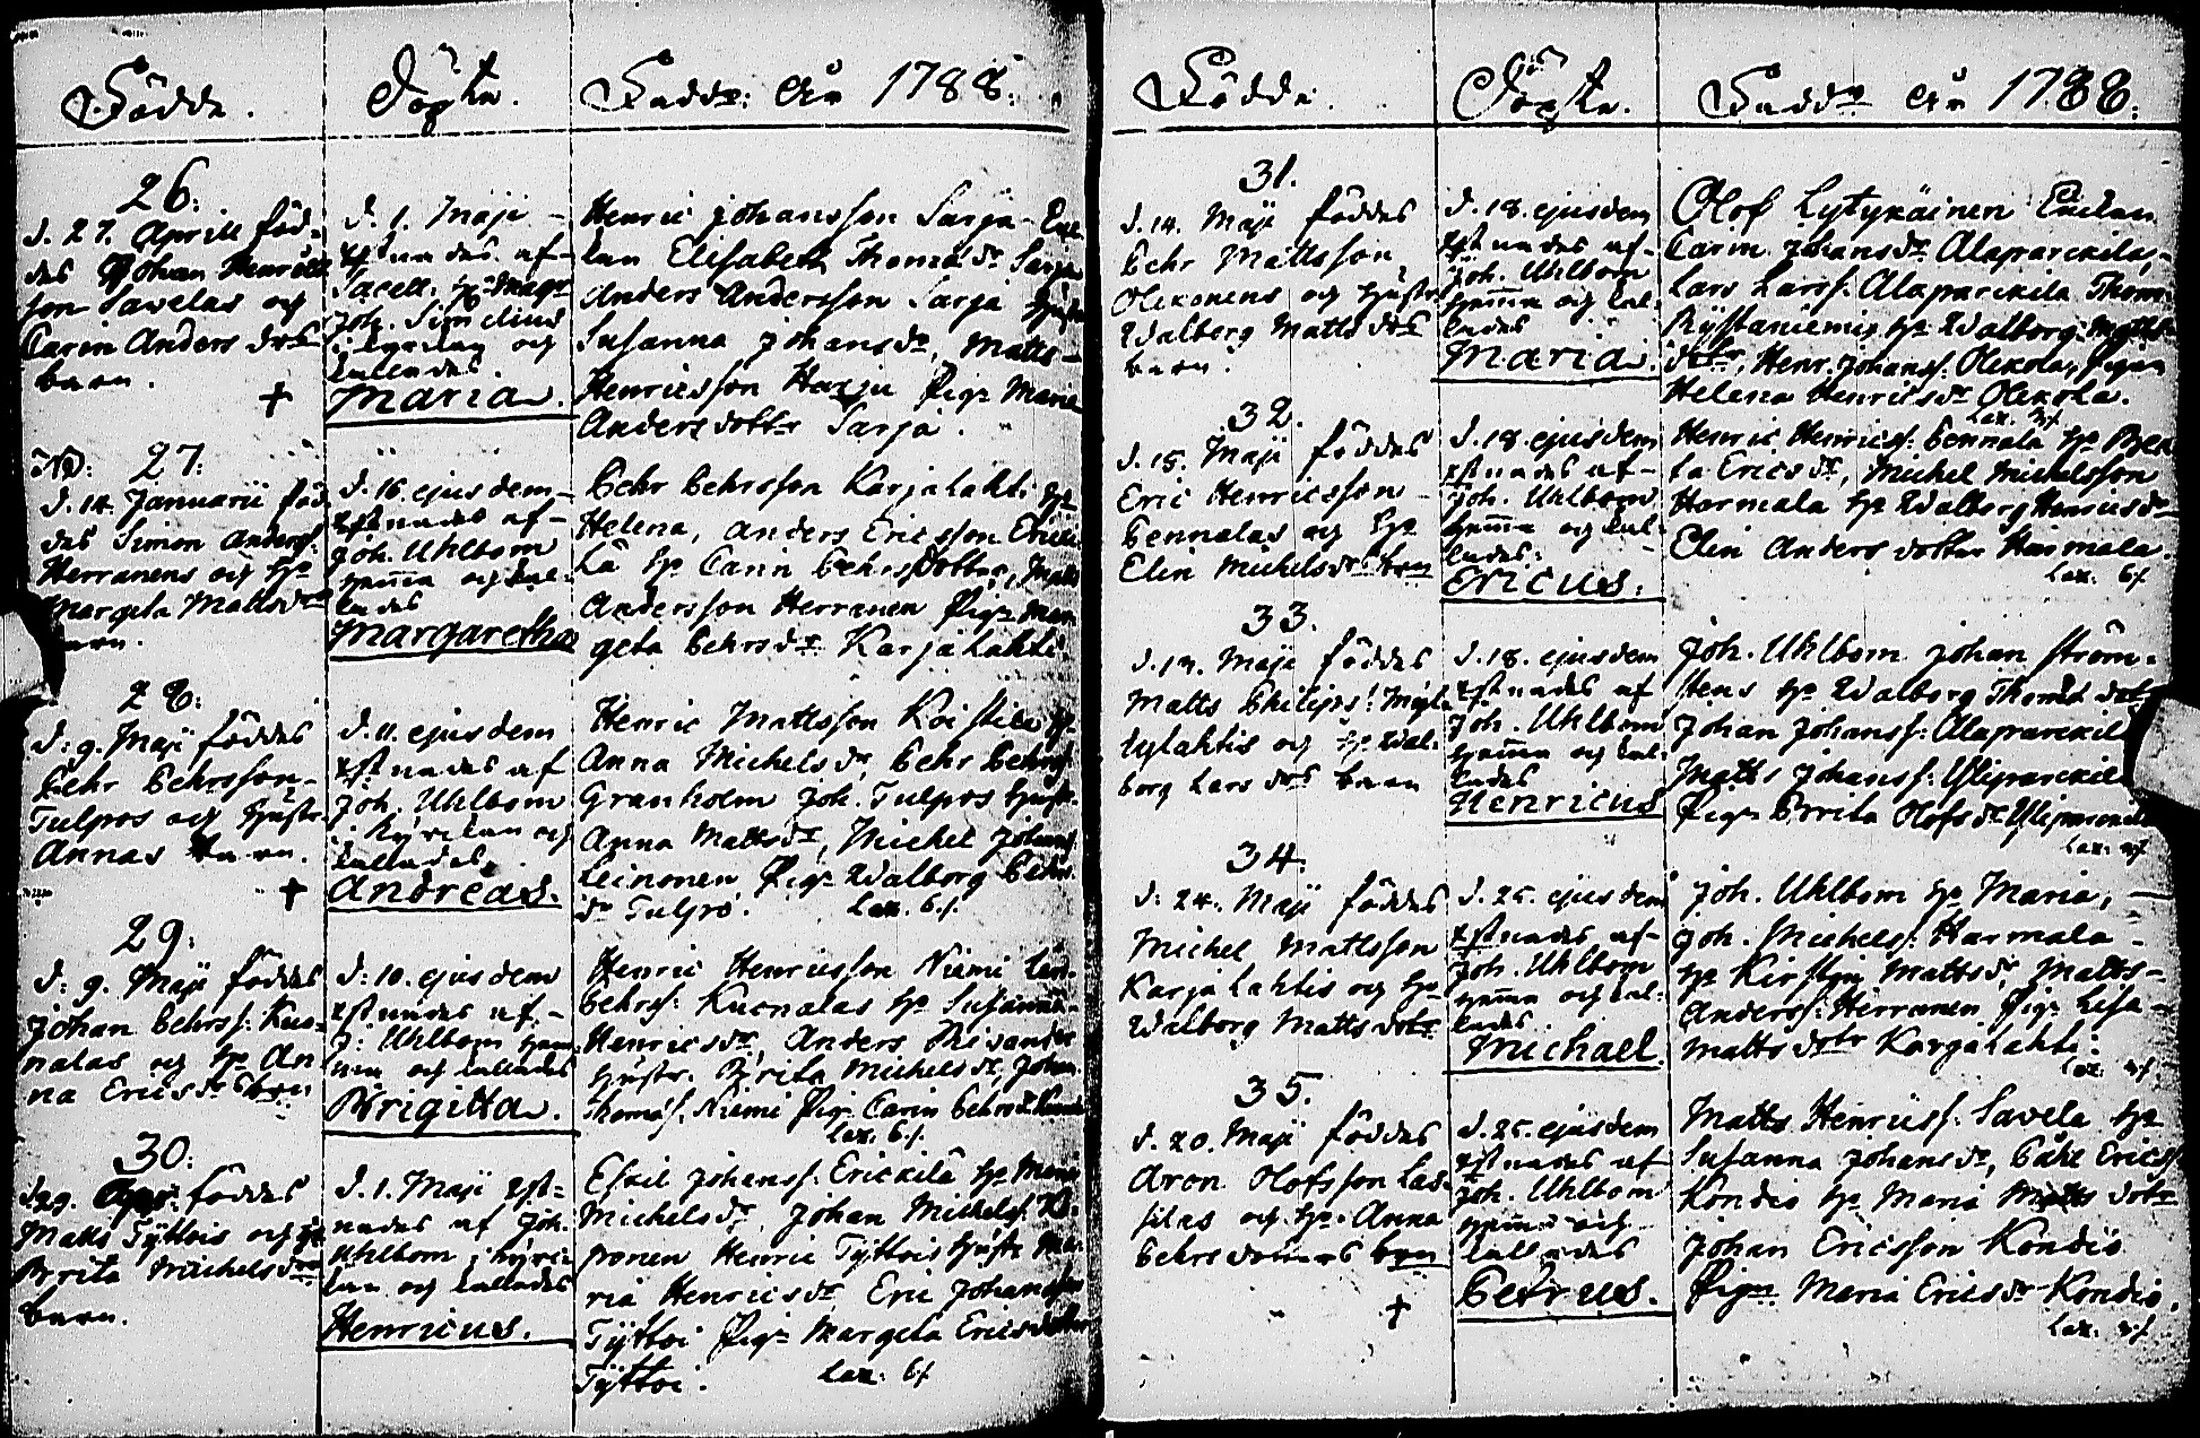 Födde.
Döpte.
Fadd: År 1788:
26:
d. 27. Aprill föd-
des Johan Henrics
son Savelas och
Carin Anders dotrs
barn.
+
d. 1. Maji
xstnades af
Sacell. H: Mag:
Joh. Simelius
i kyrkan och
kallades.
Maria.
Henric Johansson Sarja
Elisabeth Thomæ dr Sarja
Anders Andersson Sarja hustru
Susanna Johans dr, Matts
Henricsson Harju Pig: Maria
Anders dotter Sarja.
NB: 27:
d. 14. Januarii föd
des Simon Anderss:
Herranens och h:
Margeta Matts drs
barn.
d. 16. ejusdem
xstnades af
Joh. Uhlbom
hemma och kal-
lades
Margaretha
Pehr Pehrsson Karjalahti h:
Helena, Anders Ericsson Erick-
lä h: Carin Pehrsdotter, Matts
Andersson Herranen Pig: Mar
geta Pehrs dr Karjalahti.
28:
d: 9. Maji föddes
Pehr Pehrsson
Tulpos och hustr
Annas barn.
+
d. 11. ejusdem
xstnades af
Joh. Uhlbom
i kyrckan och
kallades
Andreas.
Henric Mattsson Koistila h:
Anna Michels dr, Pehr Pehrss
Granholm Joh. Tulpos hustr.
Anna Matts dr, Michel Johanss
Leinonen Pig: Walborg Pehrs
dr Tulpo. Lax. 6 f.
29:
d: 9. Maji föddes
Johan Pehrss: Kuo-
nalas och h: An
na Erics drs barn
d: 10. ejusdem
xstnades af
J: Uhlbom hem-
ma och kallades
Brigitta.
Henric Henricsson Niemi Lars
Pehrss: Kuonalas h: Susanna
Henrics dr, Anders
hustr. Brita Michels dr, Johan
Thomæs. Niemi Pig: Carin Pehrs dr
Lax. 6 f.
30:
d. 29. Apr: föddes
Matts Tyttois och h:
Brita Michels drs
barn.
d. 1. Maji xst-
nades af Joh.
Uhlbom i kyrc-
kan och kallades
Henricus.
Eskil Johanss: Erickilä h: Maria
Michels dr, Johan Michelss:
ponen Henric Tyttois hustr Ma-
ria Henrics dr Eric Johansson
Tyttoi Pig: Margeta Ericsdotter
Tyttoi. Lax: 6 f
Födde.
Döpte.
Fadd: År 1788:
31.
d. 14. Maji föddes
Pehr Mattsson
Olckonens och hustr
Walborg Matts drs
barn.
d. 18. ejusdem
xstnades af
Joh. Uhlbom
hemma och kal-
lades
Maria.
Olof Lytykäinen Enckan
Carin Johans dr Alaparckila,
Lars Larss: Alaparckila Thom.
Rystaniemis h: Walborg Matts
dotr, Henr. Johanss: Olckola, Pigan
Helena Henrics dr Olckola.
Lax. 3 f
32.
d. 15. Maji föddes
Eric Henricsson
Pennalas och h:
Elin Michels drs barn
d. 18. ejusdem
xstnades af
Joh. Uhlbom
hemma och kal-
lades:
Ericus:
Henric Henricss: Pennala h: Bri
ta Erics dr, Michel Michelsson
Harmala h: Walborg Henrics dr
Elin Anders dotter Harmala.
Lax. 6 f
33.
d. 17. Maji föddes
Matts Philipss:
lylahtis och h: Wal-
borg Lars drs barn
d. 18. ejusdem
xstnades af
Joh. Uhlbom
hemma och kal-
lades
Henricus
Joh. Uhlbom Johan Ström-
stens h: Walborg Thomæ dotr
Johan Johanss: Alaparckil
Matts Johanss: Yliparckil
Pig: Brita Olofs dr Yliparckil
Lax. 3 f
34.
d: 24. Maji föddes
Michel Mattsson
Karjalahtis och h:
Walborg Matts dotrs
d. 25. ejusdem
xstnades af
Joh. Uhlbom
hemma och kal-
lades.
Michael.
Joh. Uhlbom h: Maria,
Joh. Michelss: Harmala
h: Kirstin Matts dr, Matts
Anderss: Herranen Pig: Lisa
Matts dotr Karjalahti.
Lax. 3 f.
35.
d. 20. Maji föddes
Aron Olofsson Las-
silas och h: Anna
Pehrs dotters barn
+
d. 25. ejusdem
xstnades af
Joh. Uhlbom
hemma och
kallades
Petrus.
Matts Henricss: Savela h:
Susanna Johans dr, Påhl Ericss
Kondis h: Maria Matts dotr
Johan Ericsson Kondis
Pigan Maria Erics dr Kondis.
Lax. 3 f